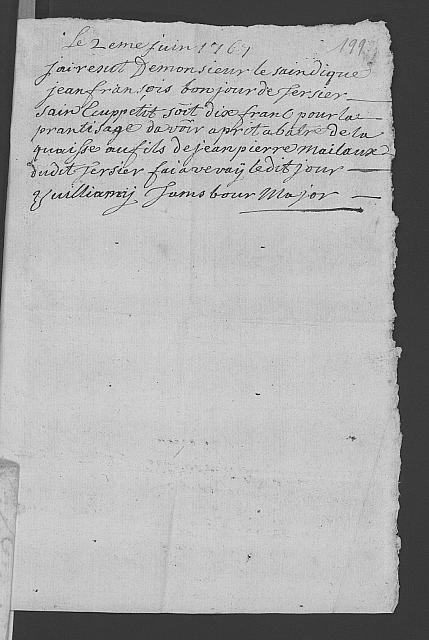 Le 2 eme juin 1767 199
jairesut Demonsieur le saindique
jean fransois bonjour de Tersier
sain Cuppetit soit dix franc pour la
prantisage davoir apret a batre de la
quaisse au fils de jean pierre Mailaux
dudit Tersier fai a vevaÿ le dit jour
Tamsbour Major